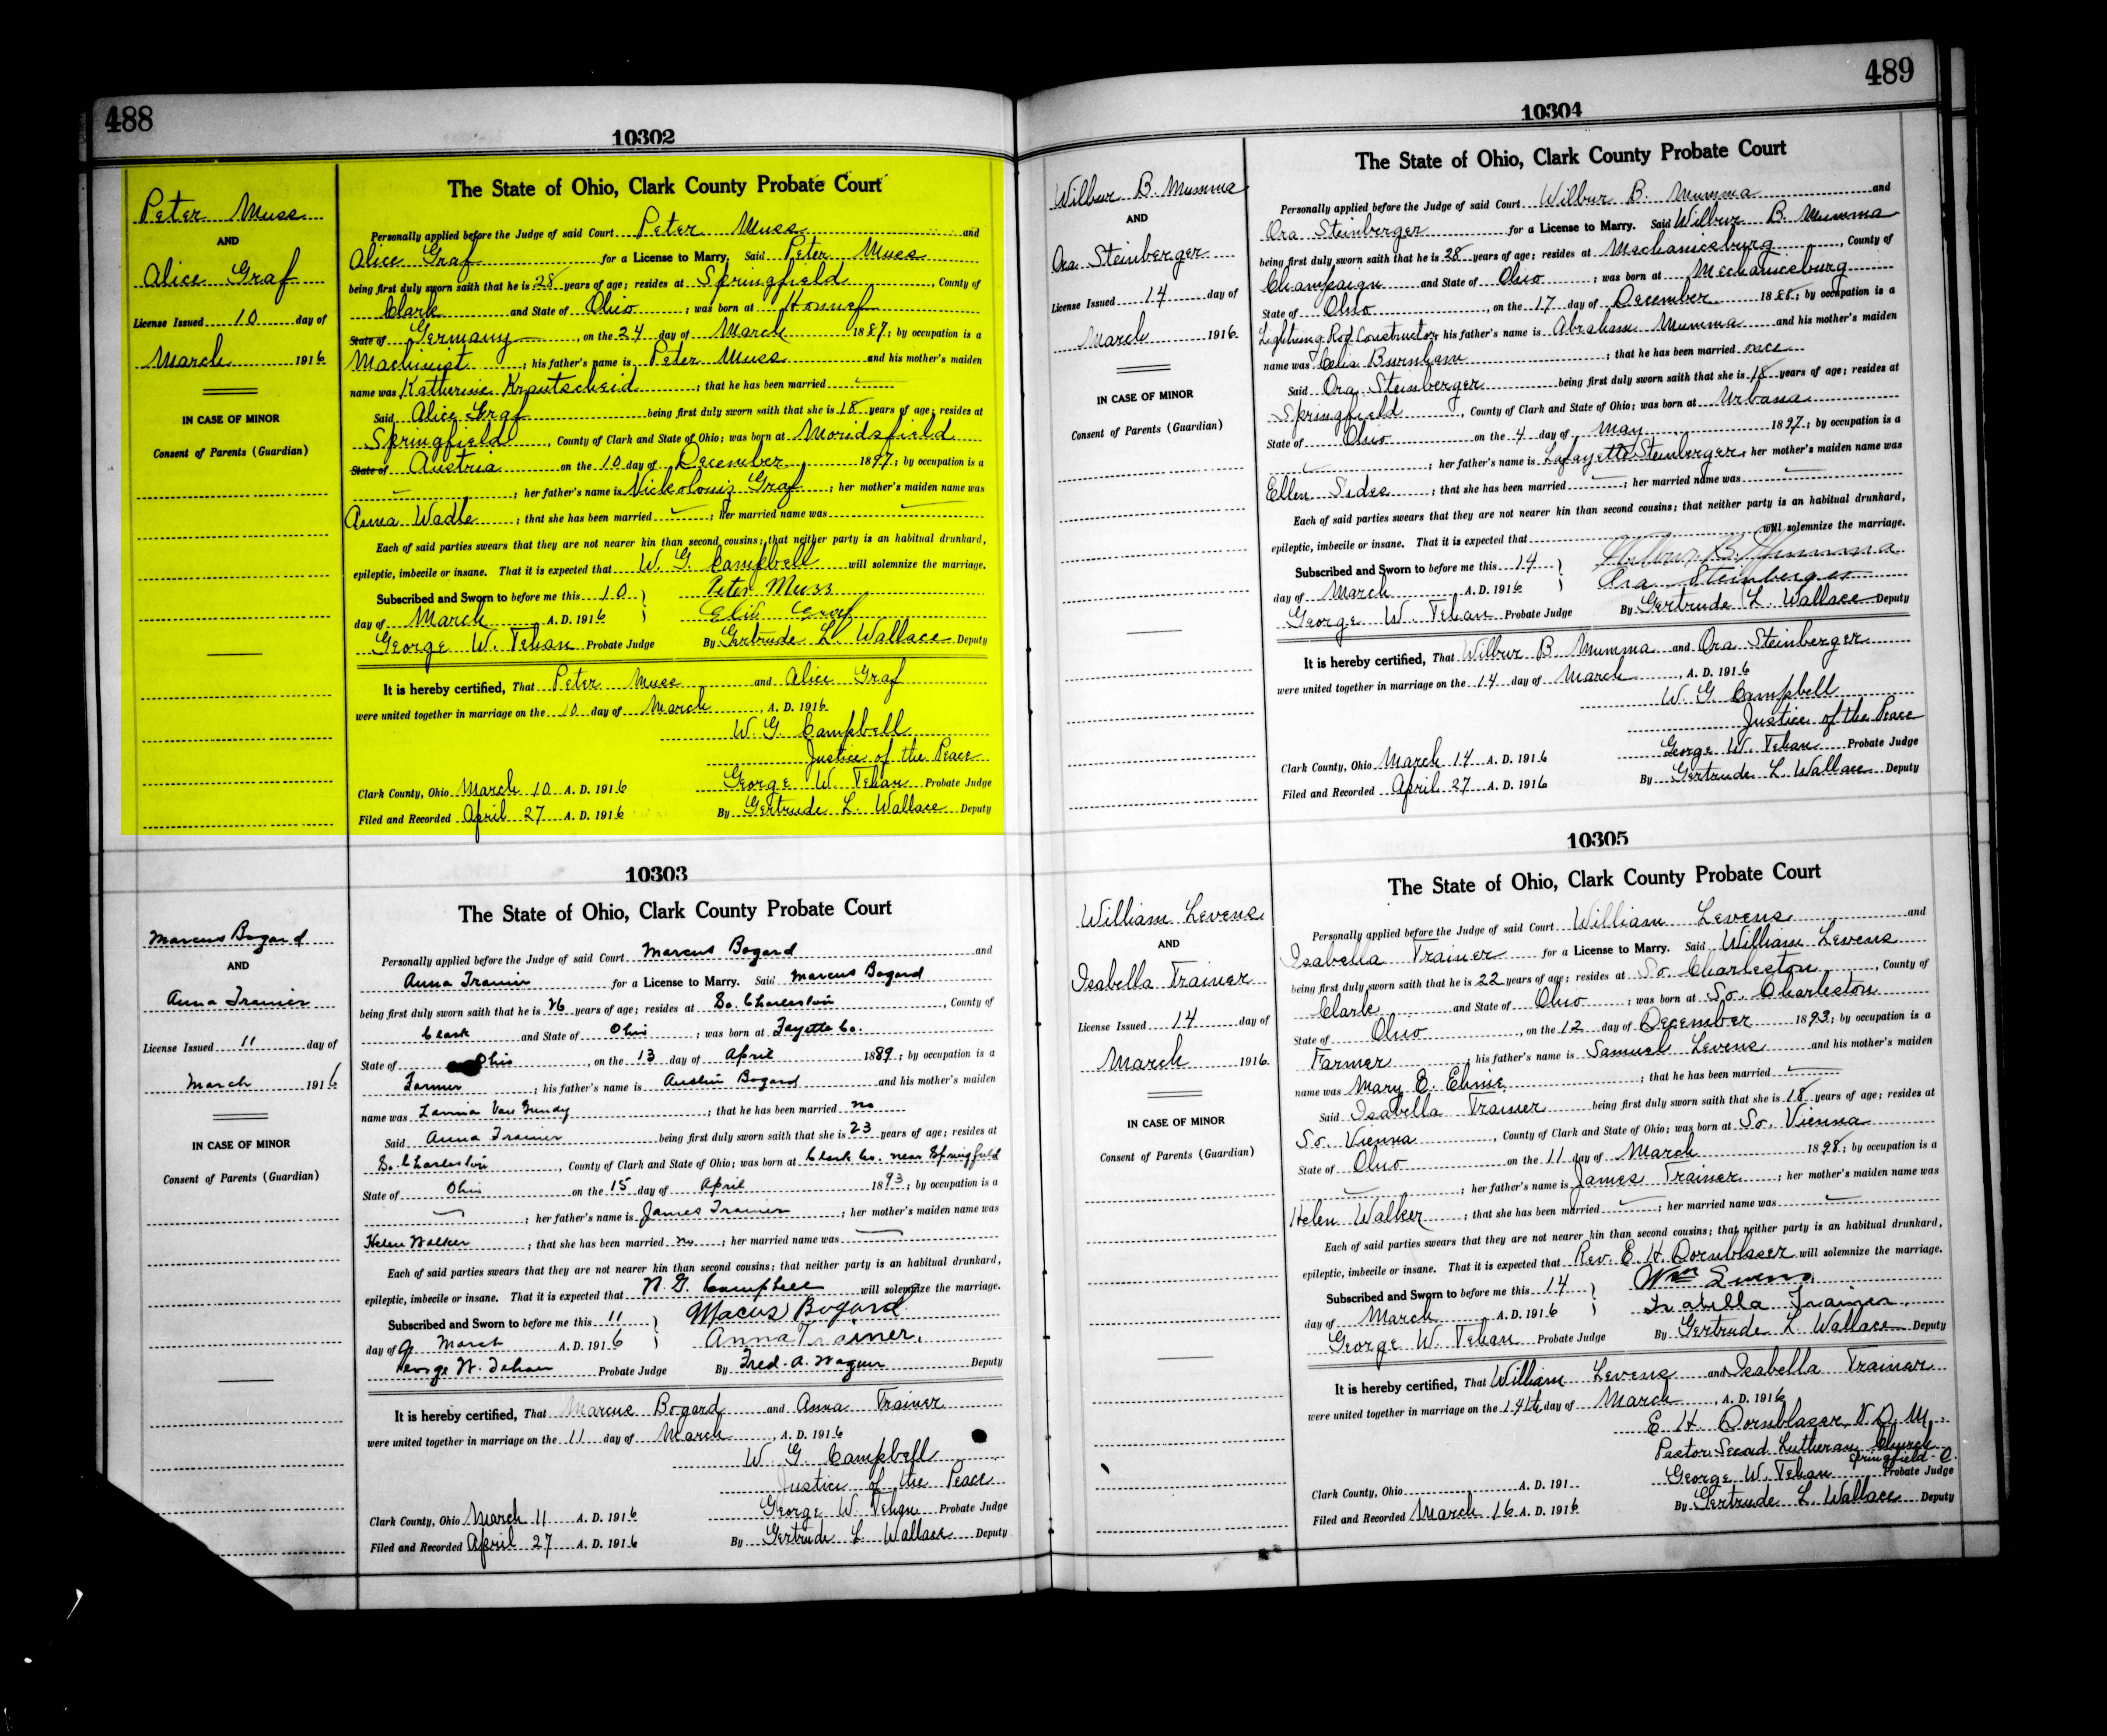 488
10302
Peter Muss
AND
Alice Graf
License Issued 10 day of
March 1916
IN CASE OF MINOR
Consent of Parents (Guardian)
The State of Ohio, Clark County Probate Court
Personally applied before the Judge of said Court Peter Muss and
Alice Graf for a License to Marry. Said Peter Muss
being first duly sworn saith that he is 28 years of age; resides at Springfield, County of
Clark and State of Ohio; was born at Honnef
State of Germany, on the 24 day of March 1887; by occupation is a
Machinist; his father's name is Peter Muss and his mother's maiden
name was Katherine Krautscheid; that he has been married
Said Alice Graf being first duly sworn saith that she is 18 years of age; resides at
Springfield, County of Clark and State of Ohio; was born at Moridsfield
State of Austria on the 10 day of December 1897; by occupation is a
; her father's name is Nickolouis Graf; her mother's maiden name was
Anna Wadle; that she has been married ; her married name was
Each of said parties swears that they are not nearer kin than second cousins; that neither party is an habitual drunkard,
epileptic, imbecile or insane. That it is expected that W. G. Campbell will solemnize the marriage.
Subscribed and Sworn to before me this 10 Peter Muss
day of March A.D. 1916 Graf
George W. Tehan Probate Judge By Gertrude L. Wallace Deputy
It is hereby certified, That Peter Muss and Alice Graf
were united together in marriage on the 10 day of March, A. D. 1916
W. G. Campbell
Justice of the Peace
George W. Tehan Probate Judge
Clark County, Ohio March 10 A. D. 1916
Filed and Recorded April 27 A. D. 1916 By Gertrude L. Wallace Deputy
10303
Marcus Bogard
AND
Anna Trainer
License Issued 11 day of
March 1916
IN CASE OF MINOR
Consent of Parents (Guardian)
The State of Ohio, Clark County Probate Court
Personally applied before the Judge of said Court Marcus Bogard and
Anna Trainer for a License to Marry. Said Marcus Bogard
being first duly sworn saith that he is 26 years of age; resides at So. Charleston, County of
Clark and State of Ohio; was born at Fayette Co.
State of Ohio, on the 13 day of April 1889; by occupation is a
Farmer; his father's name is Austin Bogard and his mother's maiden
name was Lannia Van Gundy; that he has been married no
Said Anna Trainer being first duly sworn saith that she is 23 years of age; resides at
So. Charleston, County of Clark and State of Ohio; was born at Clark Co. near Springfield
State of Ohio on the 15 day of April 1893; by occupation is a
; her father's name is James Trainer; her mother's maiden name was
Helen Walker; that she has been married no; her married name was
Each of said parties swears that they are not nearer kin than second cousins; that neither party is an habitual drunkard,
epileptic, imbecile or insane. That it is expected that W. G. Campbell will solemnize the marriage.
Subscribed and Sworn to before me this 11 Macus Bogard
day of March A.D. 1916 Anna Trainer.
George W. Tehan Probate Judge By Fred. A. Wagner Deputy
It is hereby certified, That Marcus Bogard and Anna Trainer
were united together in marriage on the 11 day of March, A. D. 1916
W. G. Campbell
Justice of the Peace
George W. Tehan Probate Judge
Clark County, Ohio March 11 A. D. 1916
Filed and Recorded April 27 A. D. 1916 By Gertrude L. Wallace Deputy
489
10304
Wilbur B. Mumma
AND
Ora Steinberger
License Issued 14 day of
March 1916
IN CASE OF MINOR
Consent of Parents (Guardian)
The State of Ohio, Clark County Probate Court
Personally applied before the Judge of said Court Wilbur B. Mumma and
Ora Steinberger for a License to Marry. Said Wilbur B. Mumma
being first duly sworn saith that he is 28 years of age; resides at Mechanicsburg, County of
Champaign and State of Ohio; was born at Mechanicsburg
State of Ohio, on the 17 day of December 1888; by occupation is a
Lightning Rod Constructor; his father's name is Abraham Mumma and his mother's maiden
name was Celia Burnham; that he has been married once
Said Ora Steinberger being first duly sworn saith that she is 18 years of age; resides at
Springfield, County of Clark and State of Ohio; was born at Urbana
State of Ohio on the 4 day of May 1897; by occupation is a
; her father's name is Lafayette Steinberger; her mother's maiden name was
Ellen Sides; that she has been married ; her married name was
Each of said parties swears that they are not nearer kin than second cousins; that neither party is an habitual drunkard,
epileptic, imbecile or insane. That it is expected that will solemnize the marriage.
Subscribed and Sworn to before me this 14 Wilbur B. Mumma
day of March A.D. 1916 Ora Steinberger
George W. Tehan Probate Judge By Gertrude L. Wallace Deputy
It is hereby certified, That Wilbur B. Mumma and Ora Steinberger
were united together in marriage on the 14 day of March, A. D. 1916
W. G. Campbell
Justice of the Peace
George W. Tehan Probate Judge
Clark County, Ohio March 14 A. D. 1916
Filed and Recorded April 27 A. D. 1916 By Gertrude L. Wallace Deputy
10305
William Levens
AND
Isabella Trainer
License Issued 14 day of
March 1916
IN CASE OF MINOR
Consent of Parents (Guardian)
The State of Ohio, Clark County Probate Court
Personally applied before the Judge of said Court William Levens and
Isabella Trainer for a License to Marry. Said William Levens
being first duly sworn saith that he is 22 years of age; resides at So. Charleston, County of
Clark and State of Ohio; was born at So. Charleston
State of Ohio, on the 12 day of December 1893; by occupation is a
Farmer; his father's name is Samuel Levens and his mother's maiden
name was Mary E. ; that he has been married
Said Isabella Trainer being first duly sworn saith that she is 18 years of age; resides at
So. Vienna, County of Clark and State of Ohio; was born at So. Vienna
State of Ohio on the 11 day of March 1898; by occupation is a
; her father's name is James Trainer; her mother's maiden name was
Helen Walker; that she has been married ; her married name was
Each of said parties swears that they are not nearer kin than second cousins; that neither party is an habitual drunkard,
epileptic, imbecile or insane. That it is expected that Rev. E. H. Dornblaser will solemnize the marriage.
Subscribed and Sworn to before me this 14 Wm
day of March A.D. 1916 Isabella Trainer.
George W. Tehan Probate Judge By Gertrude L. Wallace Deputy
It is hereby certified, That William Levens and Isabella Trainer
were united together in marriage on the 14th day of March, A. D. 1916
E. H. Dornblaser V. D. M.
Pastor Second Lutheran Church
Springfield - O.
George W. Tehan Probate Judge
Clark County, Ohio A. D. 191
Filed and Recorded March 16 A. D. 1916 By Gertrude L. Wallace Deputy